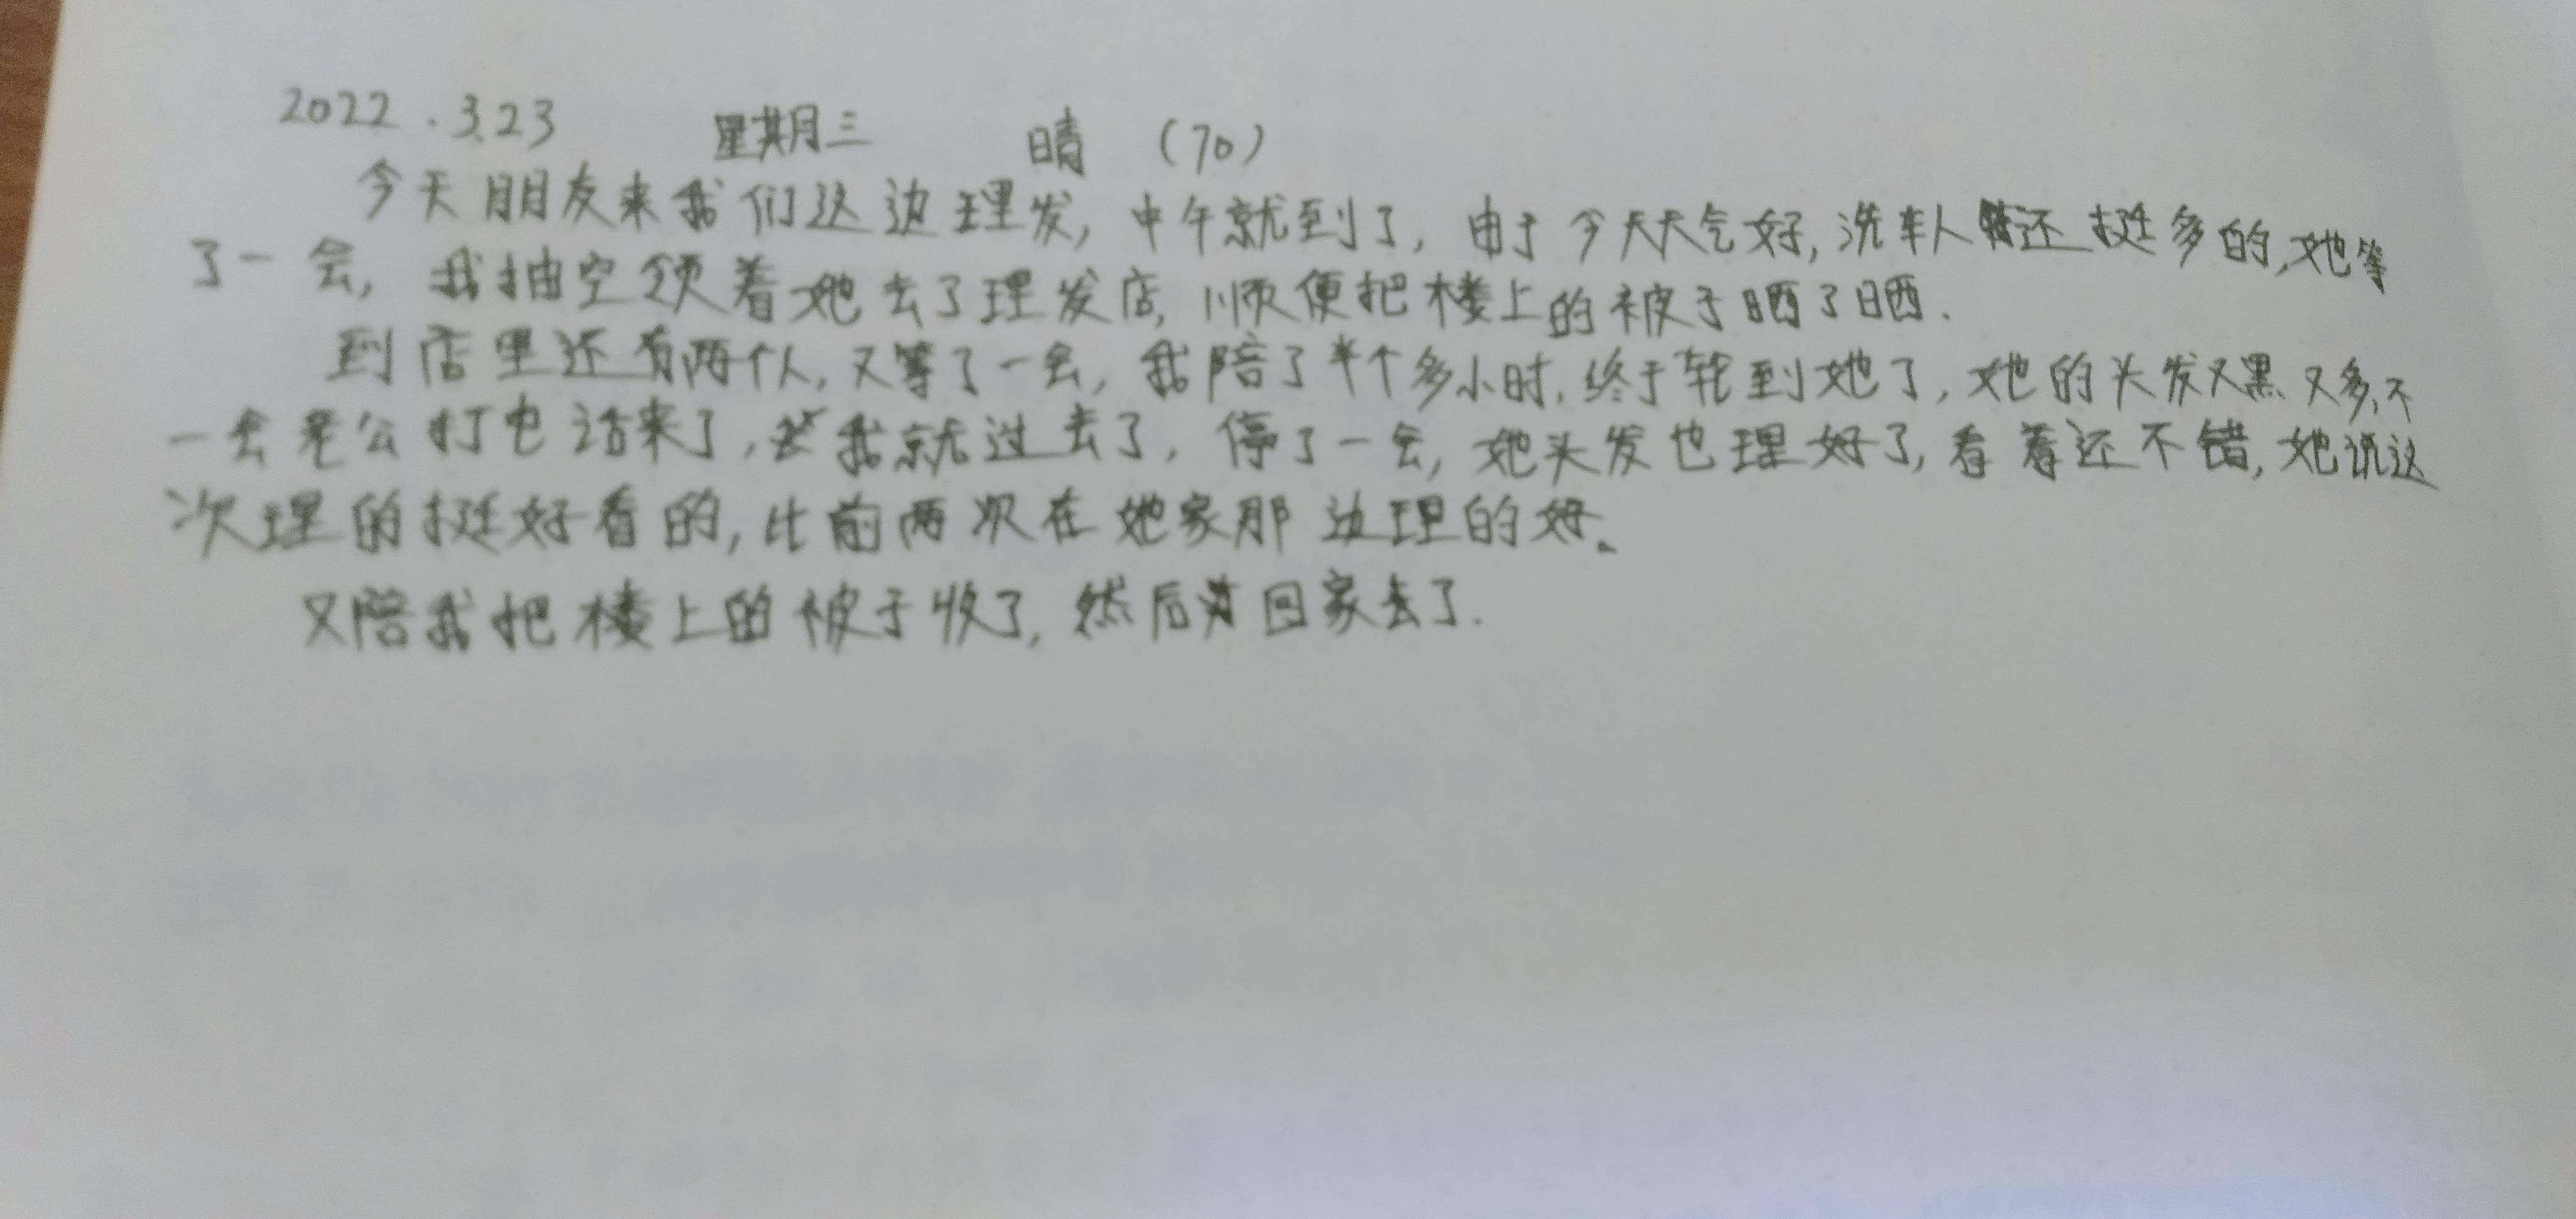 2022.3.23 星期三 晴 （70）
今天朋友来我们这边理发，中午就到了，由于今天天气好，洗车人还挺多的，她等
了一会，我抽空领着她去了理发店，顺便把楼上的被子晒了晒．
到店里还有两个人，又等了一会，我陪了半个多小时．终于轮到她了，她的头发又黑又多，不
一会老公打电话来了，我就过去了，停了一会，她头发也理好了，看着还不错，她说这
次理的挺好看的，比前两次在她家那边理的好。
又陪我把楼上的被子收了，然后回家去了．